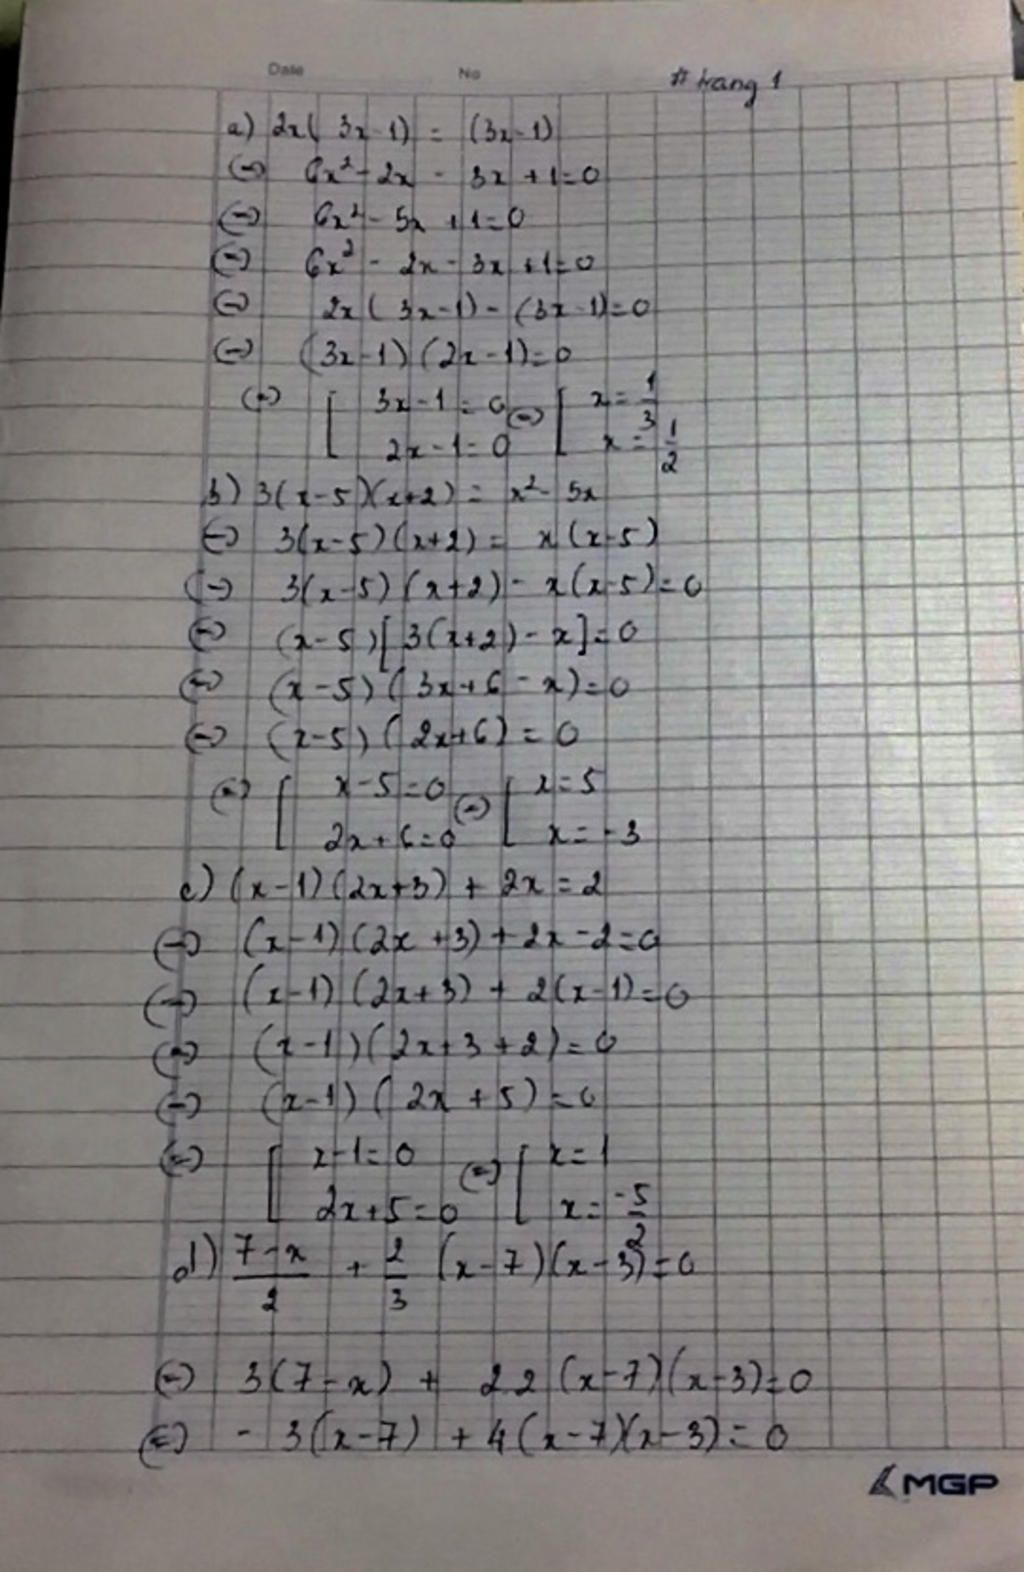 Date No # trang 1
a) 2x( 3x-1) = (3x-1)
(=) 6x² - 2x - 3x + 1 = 0
(=) 6x² - 5x + 1 = 0
(=) 6x² - 2x - 3x + 1 = 0
(=) 2x( 3x-1) - (3x-1) = 0
(=) (3x-1)(2x-1) = 0
(=) [ 3x-1 = 0 (=) [ x = 1/3
2x-1 = 0 x = 1/2
b) 3(x-5)(x+2) = x² - 5x
(=) 3(x-5)(x+2) = x(x-5)
(=) 3(x-5)(x+2) - x(x-5) = 0
(=) (x-5)[3(x+2) - x] = 0
(=) (x-5)(3x+6-x) = 0
(=) (x-5)(2x+6) = 0
(=) [ x-5 = 0 (=) [ x = 5
2x+6 = 0 x = -3
c) (x-1)(2x+3) + 2x = 2
(=) (x-1)(2x+3) + 2x - 2 = 0
(=) (x-1)(2x+3) + 2(x-1) = 0
(=) (x-1)(2x+3+2) = 0
(=) (x-1)(2x+5) = 0
(=) [ x-1 = 0 (=) [ x = 1
2x+5 = 0 x = -5/2
d) 7-x/2 + 2/3 (x-7)(x-3) = 0
(=) 3(7-x) + 2.2 (x-7)(x-3) = 0
(=) - 3(x-7) + 4(x-7)(x-3) = 0
MGP